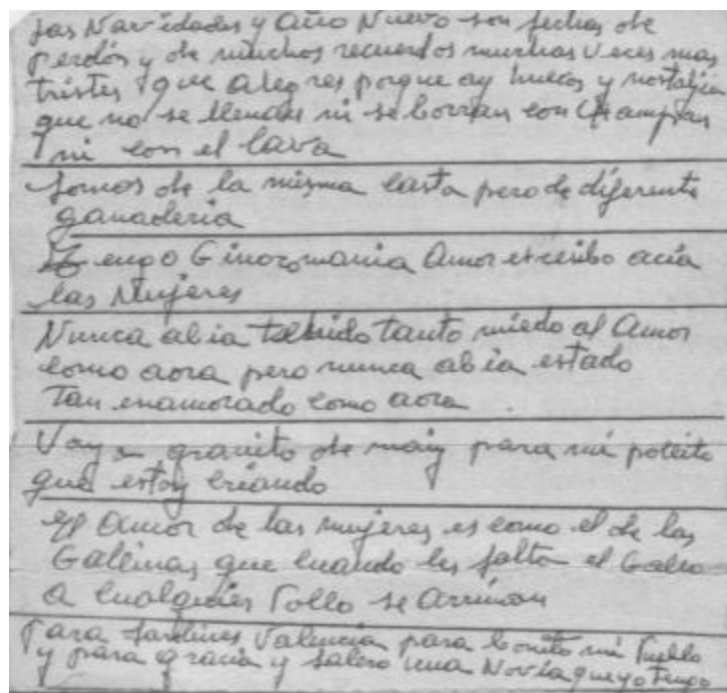 Las Navidades y Año Nuevo son fechas de
perdón y de muchos recuerdos muchas veces mas
tristes que alegres porque ay huecos y nostalgia
que no se llenan ni se borran con Champan
ni con el Cava
Somos de la misma casta pero de diferente
ganaderia
Tengo Ginocomania Amor excesibo acia
las Mujeres
Nunca abia tenido tanto miedo al Amor
como aora pero nunca abia estado
Tan enamorado como aora
Voy a granito de maiz para mi pollito
que estoy criando
El Amor de las mujeres es como el de las
Gallinas que cuando les falta el Gallo
a cualquier Pollo se Arriman
Para Jardines Valencia para bonito mi Pueblo
y para gracia y salero una Novia que yo Tengo